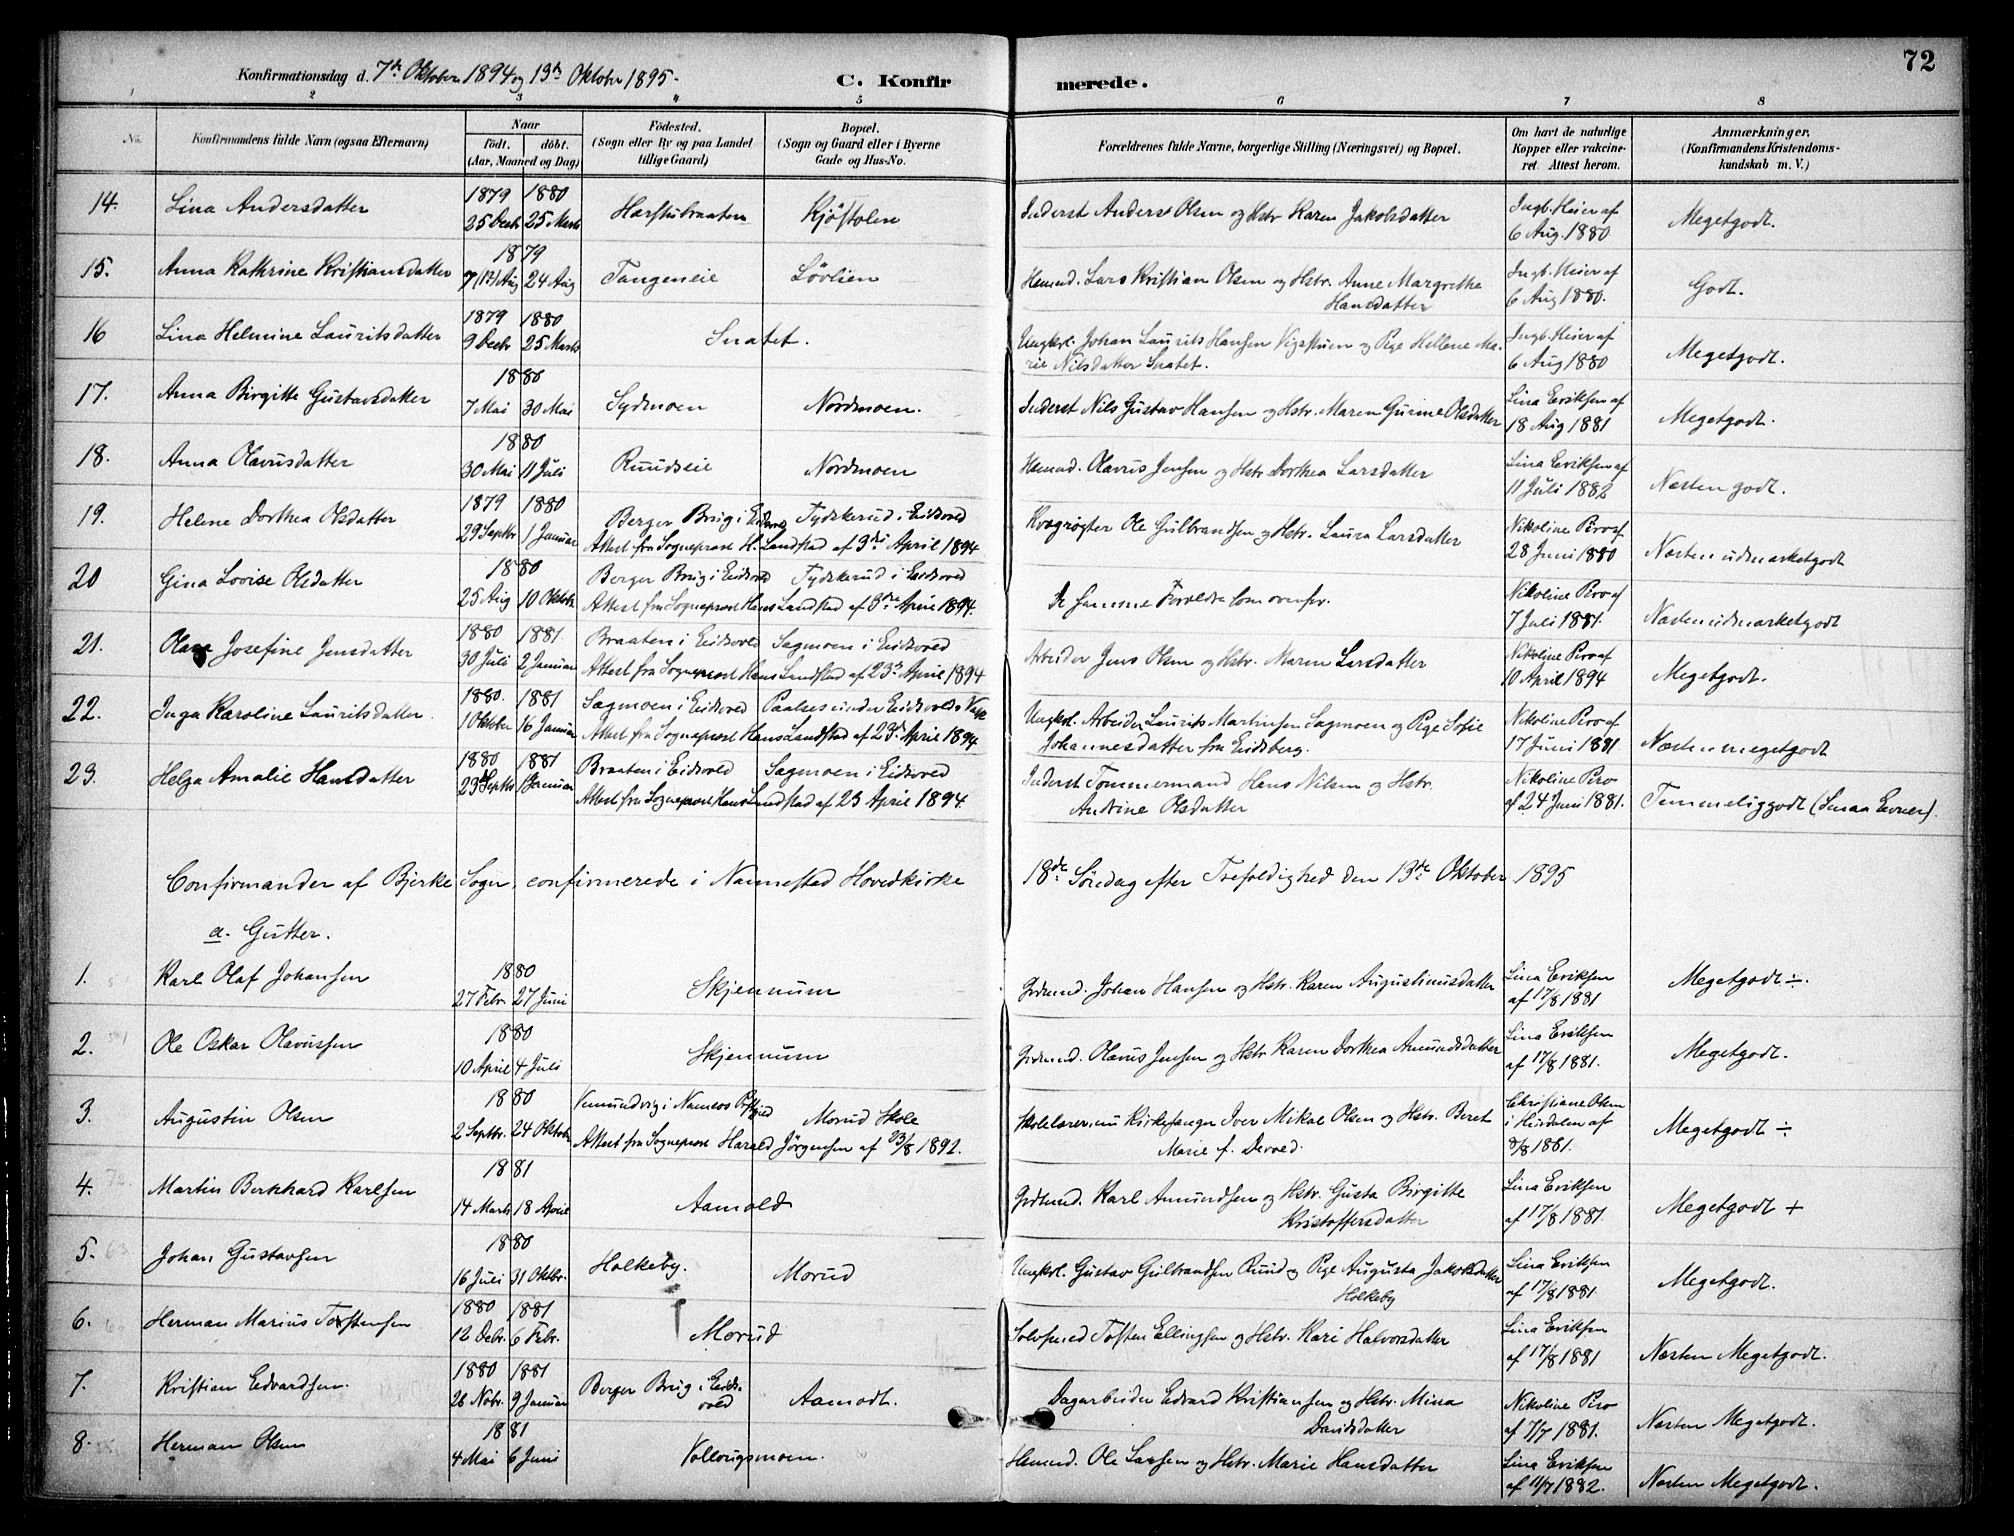 72
Konfirmationsdag d. 7de Oktober 1894 og 13de Oktober 1895.
C. Konfirmerede.
1 2 3 4 5 6 7 8
No.
Konfirmandens fulde Navn (ogsaa Efternavn)
Naar
født. døbt.
(Aar, Maaned og Dag)
Fødested.
(Sogn eller By og paa Landet
tillige Gaard)
Bopæl.
(Sogn og Gaard eller i Byerne
Gade og Hus-No.
Forældrenes fulde Navne, borgerlige Stilling (Næringsvei) og Bopæl.
Om havt de naturlige
Kopper eller vakcineret. Attest herom.
Anmærkninger.
(Konfirmandens Kristendomskundskab m. V.)
14. Lina Andersdatter 1879 25 Decbr 1880 25 Marts Harstubraaten Kjöstolen Inderst Anders Olsen og Hstr. Karen Jakobsdatter Ingb. Heier af 6 Aug. 1880 Megetgodt.
15. Anna Kathrine Kristiansdatter 1879 7 (12) Aug 24 Aug Tangeneie Lövlien Hsmnd. Lars Kristian Olsen og Hstr. Anne Margrethe Hansdatter Ingb. Heier af 6 Aug 1880. Godt.
16 Lina Helmine Lauritsdatter 1879 9 Decbr 1880 25 Marts Snatet. Ungkrl. Johan Laurits Hansen Vigstuen og Pige Hellene Marie Nilsdatter Snatet. Ingb. Heier af 6 Aug 1880 Megetgodt.
17. Anna Birgitte Gustavsdatter 1880 7 Mai 30 Mai Sydmoen Nordmoen. Inderst Nils Gustav Hansen og Hstr. Maren Gurine Olsdatter Lina Eriksen af 18 Aug 1881 Megetgodt.
18. Anna Olavusdatter 1880 30 Mai 11 Juli Ruudseie Nordmoen Hsmnd. Olavus Jensen og Hstr Dorthea Larsdatter Lina Eriksen af 11 Juli 1882 Næsten godt.
19. Helene Dorthea Olsdatter 1879 29 Septbr 1880 1 Januar Berger Brug i Eidsvold Tydskerud i Eidsvold
Attest fra Sogneprest H. Landstad af 9de April 1894 Kvægrøgter Ole Gulbrandsen og Hstr. Laura Larsdatter Nikoline Piro af 28 Juni 1880 Næsten udmærketgodt
20 Gina Lovise Olsdatter 1880 25 Aug 10 Oktobr Berger Brug i Eidsvold Tydskerud i Eidsvold
Attest fra Sogneprest Hans Landstad af 8de April 1894. De samme Forældre som ovenfor. Nikoline Piro af 7 Juli 1881. Næsten udmærketgodt
21. Josefine Jensdatter 1880 30 Juli 1881. 2 Januar Braaten i Eidsvold Sagmoen i Eidsvold
Attest fra Sogneprest Hans Landstad af 23de April 1894 Arbeider Jens Olsen og Hstr. Maren Larsdatter Nikoline Piro af 10 April 1894 Megetgodt.
22. Inga Karoline Lauritsdatter. 1880. 1 Oktober 1881 16 Januar Sagmoen i Eidsvold Paalses under Eidsvolds Værk
Attest fra Sogneprest Hans Landstad af 23de April 1894 Ungkrl. Arbeider Laurits Martinsen Sagmoen og Pige Sofie Johannesdatter fra Eidsberg. Nikoline Piro af 17 Juni 1881 Næsten megetgodt
23. Helga Amalie Hansdatter 1880 29 Septbr 1881 1 Januar Braaten i Eidsvold Sagmoen i Eidsvold
Attest fra Sogneprest Hans Landstad af 23 April 1894. Inderst Tømmermand Hans Nilsen og Hstr. Antine Olsdatter Nikoline Piro af 24 Juni 1881. Temmeliggodt (Smaa Evner).
Confirmander af Bjerke Sogn, confirmerede i Nannestad Hovedkirke 18de Söndag efter Trefoldighed den 13de Oktober 1895
a. Gutter.
1. Karl Olaf Johansen 1880 27 Febr. 27 Juni Skjennum Grdmnd. Johan Hansen og Hstr. Karen Augustinusdatter Lina Eriksen af 17/8 1881 Megetgodt ÷.
2. Ole Oskar Olavussen 1880 10 April 4 Juli Skjennum Grdmnd. Olavus Jensen og Hstr Karen Dorthea Amundsdatter Lina Eriksen af 17/8 1881. Megetgodt.
3. Augustin Olsen 1880 2 Septbr. 24 Oktobr Vemundvig i Namsos Prstgjed Morud Skole
Attest fra Sogneprest Harald Jörgensen af 23/8 1892. Skolelærer, nu Kirkesanger Iver Mikal Olsen og Hstr. Beret Marie f. Devold. Christiane Olsen i Hurdalen af 8/8 1881. Megetgodt ÷
4. Martin Bernhard Karlsen 1881 14 Marts 18 April Aamold Grdmnd. Karl Amundsen og Hstr. Gusta Birgitte Kristoffersdatter Lina Eriksen af 17/8 1881. Megetgodt +
5. Johan Gustavsen 1880 16 Juli 31 Oktbr. Holkeby. Morud Ungkrl. Gustav Gulbrandsen Ruud og Pige Augusta Jakobsdatter Holkeby Lina Eriksen af 17/8 1881. Megetgodt.
6. Herman Marius Torstensen 1880 12 Debr. 1881 6 Febr. Morud Selveiermnd Tosten Ellingsen og Hstr. Kari Halvorsdatter Lina Eriksen af 17/8 1881 Næsten Megetgodt.
7. Kristian Edvardsen. 1880 26 Nobr. 1881 9 Januar Berger Brug i Eidsvold Aamodt. Dagarbeider Edvard Kristiansen og Hstr. Mina Davidsdatter Nikoline Piro af 7/7 1881. Næsten Megetgodt.
8. Herman Olsen 1881 4 Mai 6 Juni Vollaugsmoen. Hsmnd. Ole Larsen og Hstr. Marie Hansdatter Lina Eriksen af 11/7 1882. Næsten Megetgodt.